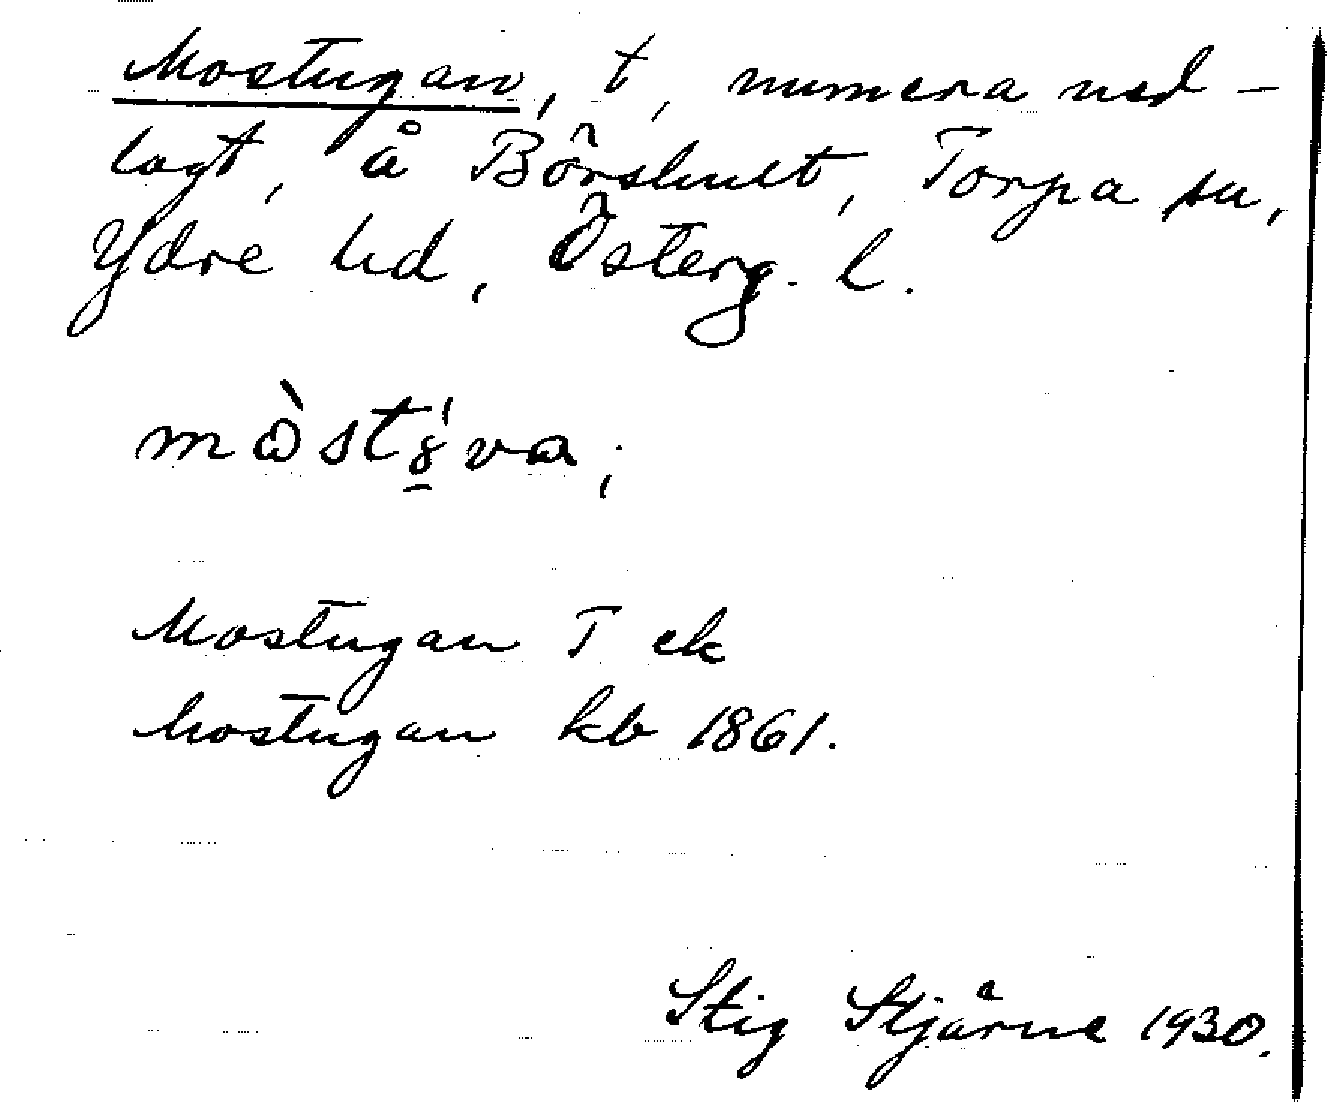 Mostugan, t, numera ned-
lagt, å Börshult, Torpa sn,
Ydre hd, Österg. l.
mòstỳva;
Mostugan T ek
Mostugan kb 1861.
Stig Stjärne 1930.